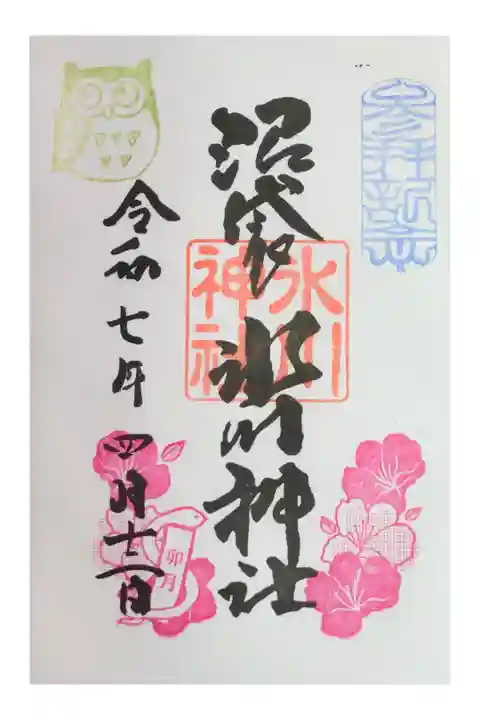 沼袋 氷川神社
氷川
神社
令和七年四月十二日
卯月